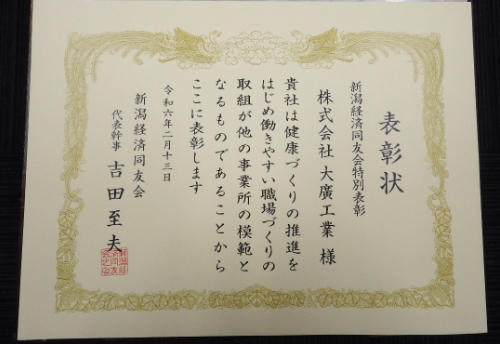 表彰状
新潟経済同友会特別表彰
株式会社 大廣工業 様
貴社は健康づくりの推進を
はじめ働きやすい職場づくりの
取組が他の事業所の模範と
なるものであることから
ここに表彰します
令和六年二月十三日
新潟経済同友会
代表幹事 吉田至夫